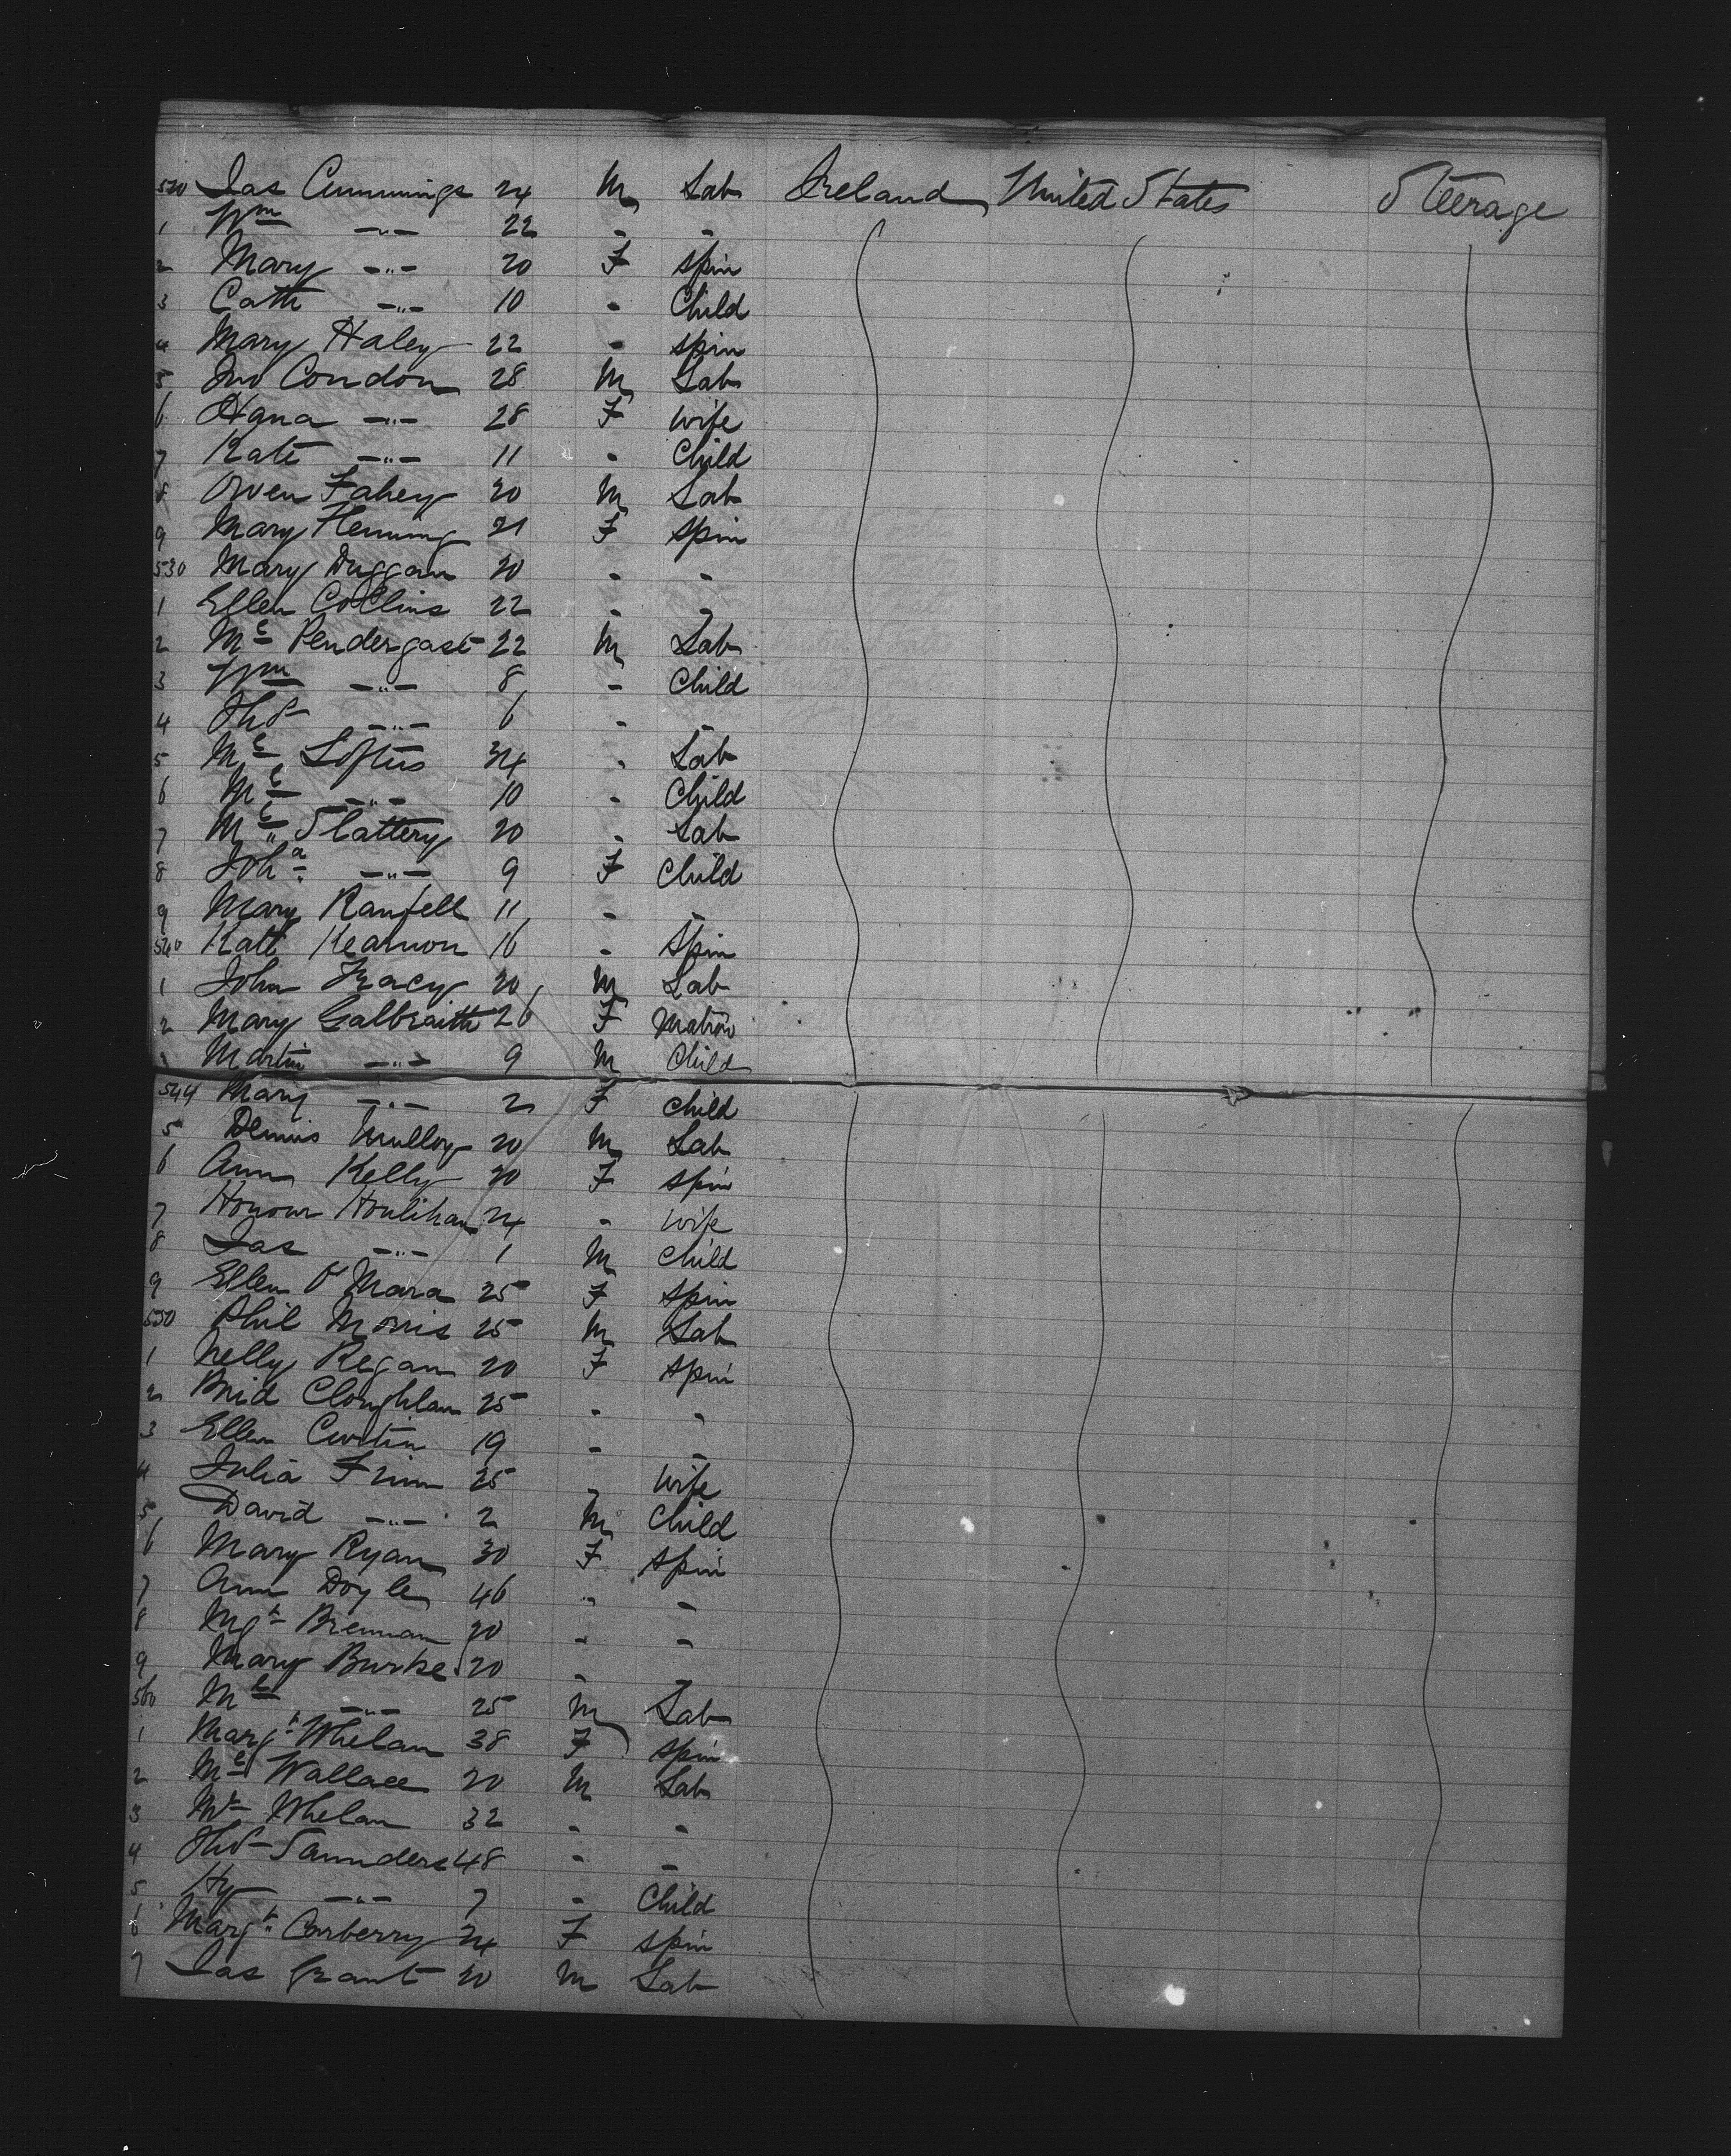 520 Jas Cummings 24 M Lab Ireland United States Steerage
1 Wm —"— 22 - -
2 Mary —"— 20 F Spin
3 Cath —"— 10 - Child
4 Mary Haley 22 - Spin
5 Jno Condon 28 M Lab
6 Hana —"— 28 F Wife
7 Kate —"— 11 - Child
8 Owen Fahey 20 M Lab
9 Mary Fleming 21 F Spin
530 Mary Duggan 20 - -
1 Ellen Collins 22 - -
2 Ml Pendergast 22 M Lab
3 Wm —"— 8 - Child
4 Thos —"— 6 - -
5 Ml Loftus 34 - Lab
6 Ml —"— 10 - Child
7 Ml Slattery 20 - Lab
8 Joha —"— 9 F Child
9 Mary 11 - -
540 Kate 16 - Spin
1 John Tracy 20 M Lab
2 Mary Galbraith 26 F Matron
3 Martin —"— 9 M Child
544 Mary —"— 2 F Child
5 Dennis Mulloy 20 M Lab
6 Ann Kelly 20 F Spin
7 Honour Houlihan 24 - Wife
8 Jas —"— 1 M Child
9 Ellen O'Mara 25 F Spin
550 Phil Morris 25 M Lab
1 Nelly Regan 20 F Spin
2 Brid Cloughlan 25 - -
3 Ellen Curtin 19 - -
4 Julia 25 - Wife
5 David —"— 2 M Child
6 Mary Ryan 30 F Spin
7 Ann Doyle 46 - -
8 Mgt Brennan 20 - -
9 Mary Burke 20 - -
560 Ml —"— 25 M Lab
1 Margt Whelan 38 F Spin
2 Ml Wallace 20 M Lab
3 Mt Whelan 32 - -
4 Thos Saunders 48 - -
5 Hy —"— 7 - Child
6 Margt Carberry 24 F Spin
7 Jas Grant 20 M Lab